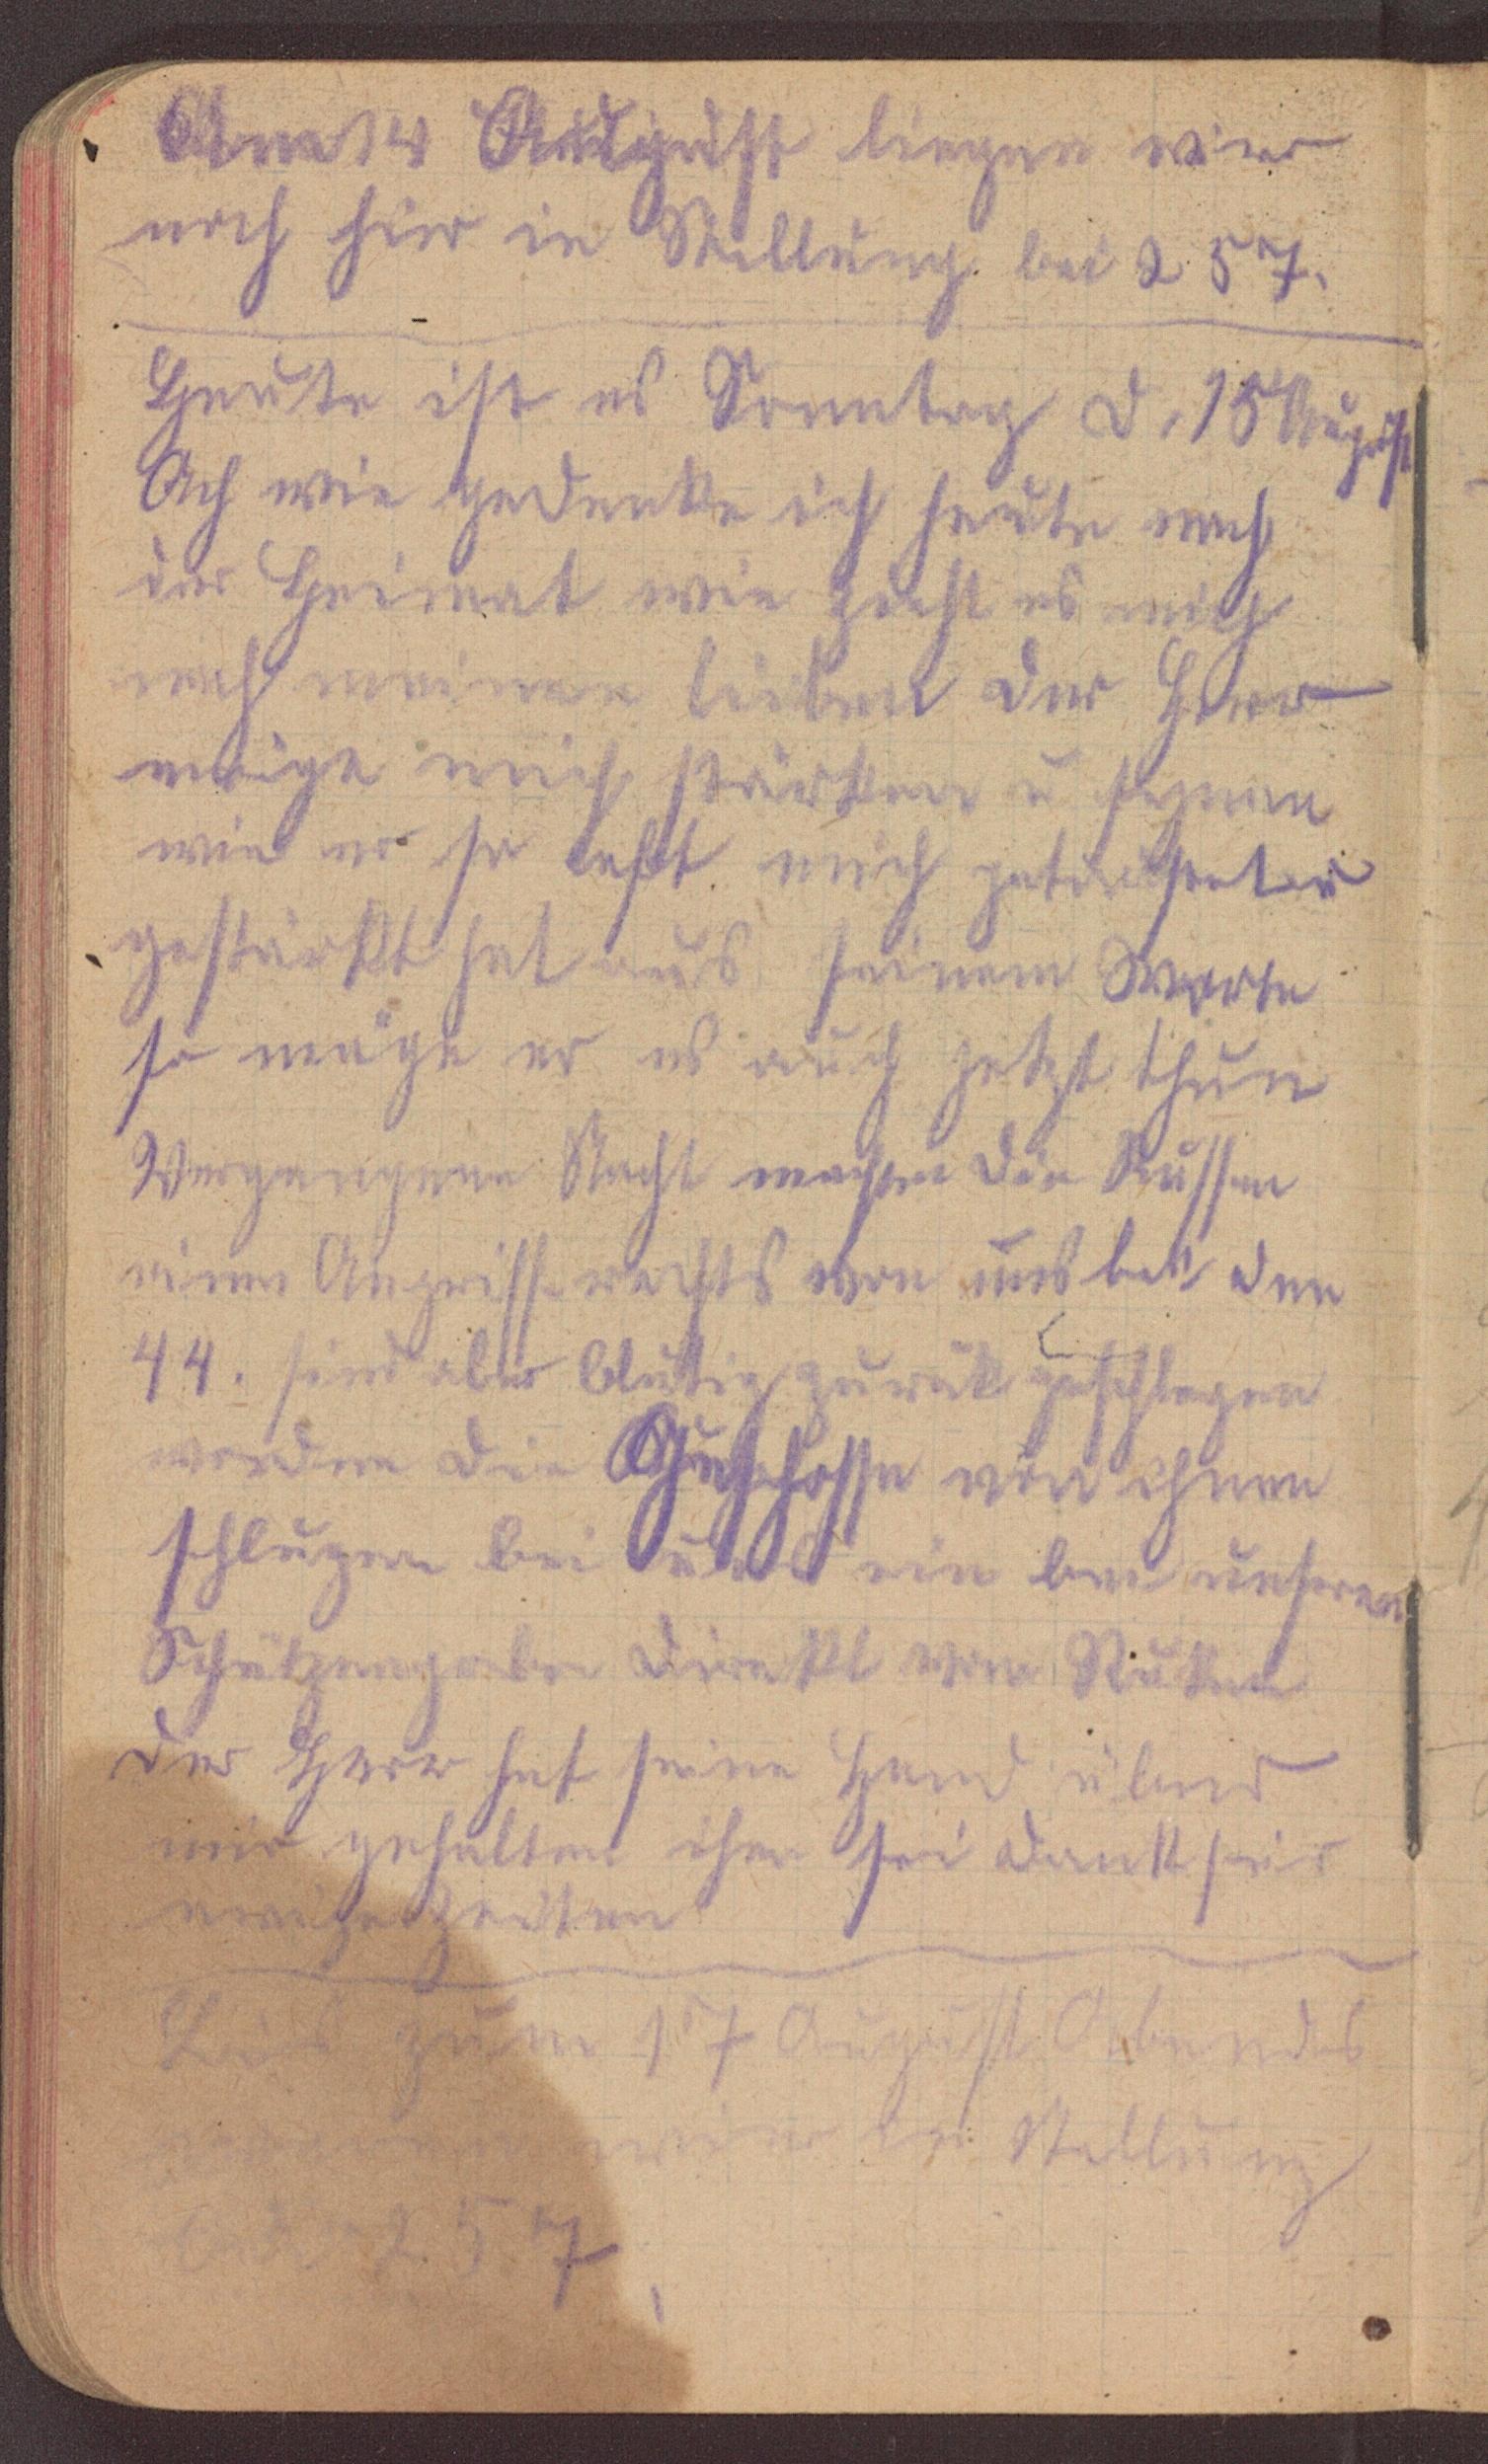 Am 14 August liegen wir
noch hier in Stellung bei 257.
Heute ist es Sonntag d. 15 August
Ach wie gedenke ich heute nach
der Heimat wie zieht es mich
nach meinen lieben der Herr
möge mich stärken u segnen
wie er so oft mich getröstet u
gestärkt hat aus seinem Worte
so möge er es auch jetzt thun
Vergangene Nacht machten die Russen
einen Angriff rechts von uns bei den
44. sind aber blutig zurük geschlagen
worden die Geschosse von ihnen
schlugen bei uns ein bei unseren
Schützengraben direkt vom Rüken
der Herr hat seine Hand über
mir gehalten ihm sei dank für
ewige zeiten
Bis zum 17 August Abends
waren wir in Stellung
bei 257